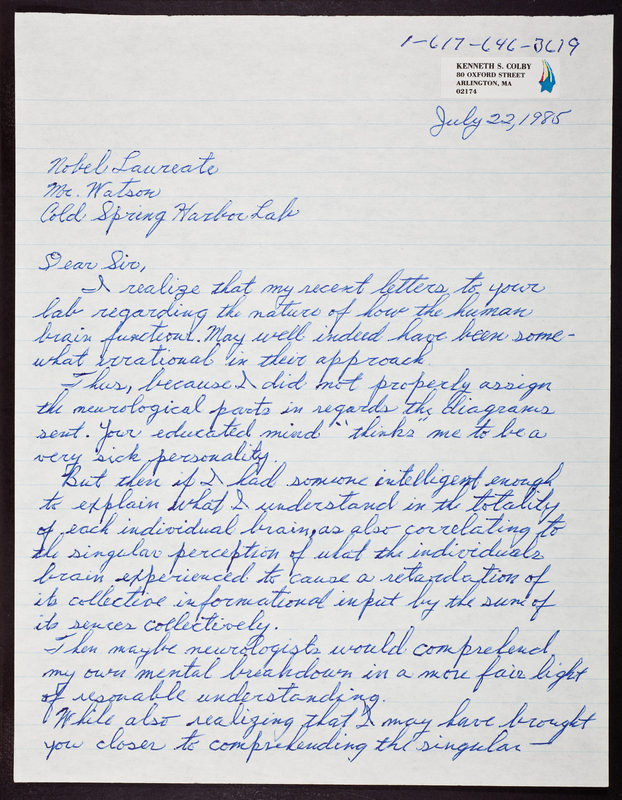 1-617-646-3619
KENNETH S. COLBY
80 OXFORD STREET
ARLINGTON, MA
02174
July 22, 1985
Nobel Laureate
Mr. Watson
Cold Spring Harbor Lab
Dear Sir,
I realize that my recent letters to your
lab regarding the nature of how the human
brain functions. May well indeed have been some-
what irrational in their approach
Thus, because I did not properly assign
the neurological parts in regards the diagrams
sent. Your educated mind "thinks" me to be a
very sick personality.
But then if I had someone intelligent enough
to explain what I understand in the totality
of each individual brain, as also correlating to
the singular perception of what the individuals
brain experienced to cause a retardation of
its collective informational input by the sum of
its sences collectively.
Then maybe neurologists would comprehend
my own mental breakdown in a more fair light
of resonable understanding.
While also realizing that I may have brought
you closer to comprehending the singular —